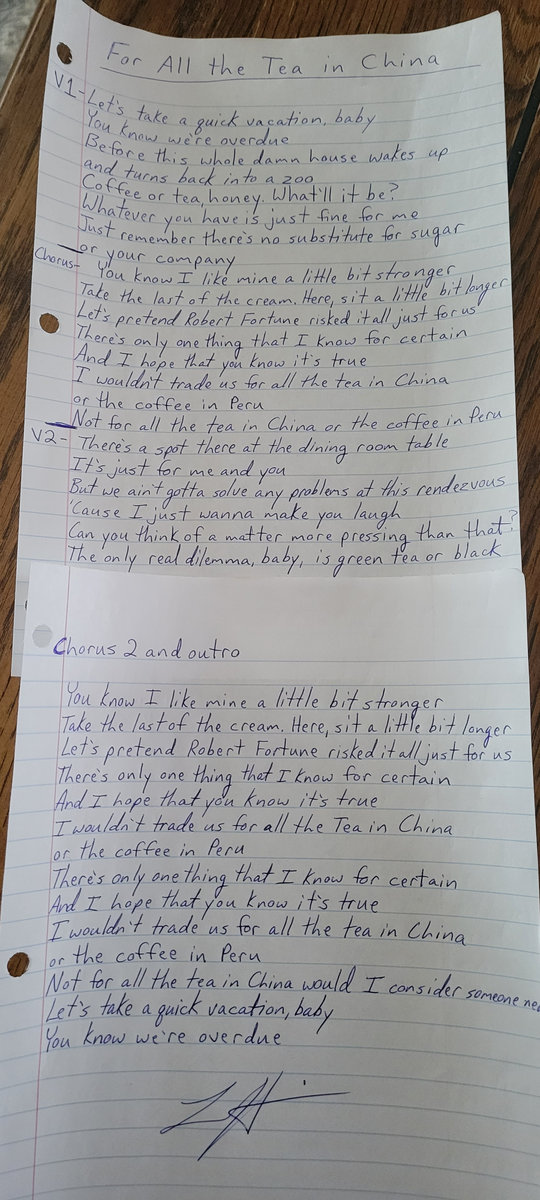 For All the Tea in China
V1- Let's take a quick vacation, baby
You know we're overdue
Before this whole damn house wakes up
and turns back into a zoo
Coffee or tea, honey. What'll it be?
Whatever you have is just fine for me
Just remember there's no substitute for sugar
or your company
Chorus- You know I like mine a little bit stronger
Take the last of the cream. Here, sit a little bit longer
Let's pretend Robert Fortune risked it all just for us
There's only one thing that I know for certain
And I hope that you know it's true
I wouldn't trade us for all the tea in China
or the coffee in Peru
Not for all the tea in China or the coffee in Peru
V2- There's a spot there at the dining room table
It's just for me and you
But we ain't gotta solve any problems at this rendezvous
'Cause I just wanna make you laugh
Can you think of a matter more pressing than that?
The only real dilemma, baby, is green tea or black
Chorus 2 and outro
You know I like mine a little bit stronger
Take the last of the cream. Here, sit a little bit longer
Let's pretend Robert Fortune risked it all just for us
There's only one thing that I know for certain
And I hope that you know it's true
I wouldn't trade us for all the Tea in China
or the coffee in Peru
There's only one thing that I know for certain
And I hope that you know it's true
I wouldn't trade us for all the tea in China
or the coffee in Peru
Not for all the tea in China would I consider someone
Let's take a quick vacation, baby
You know we're overdue